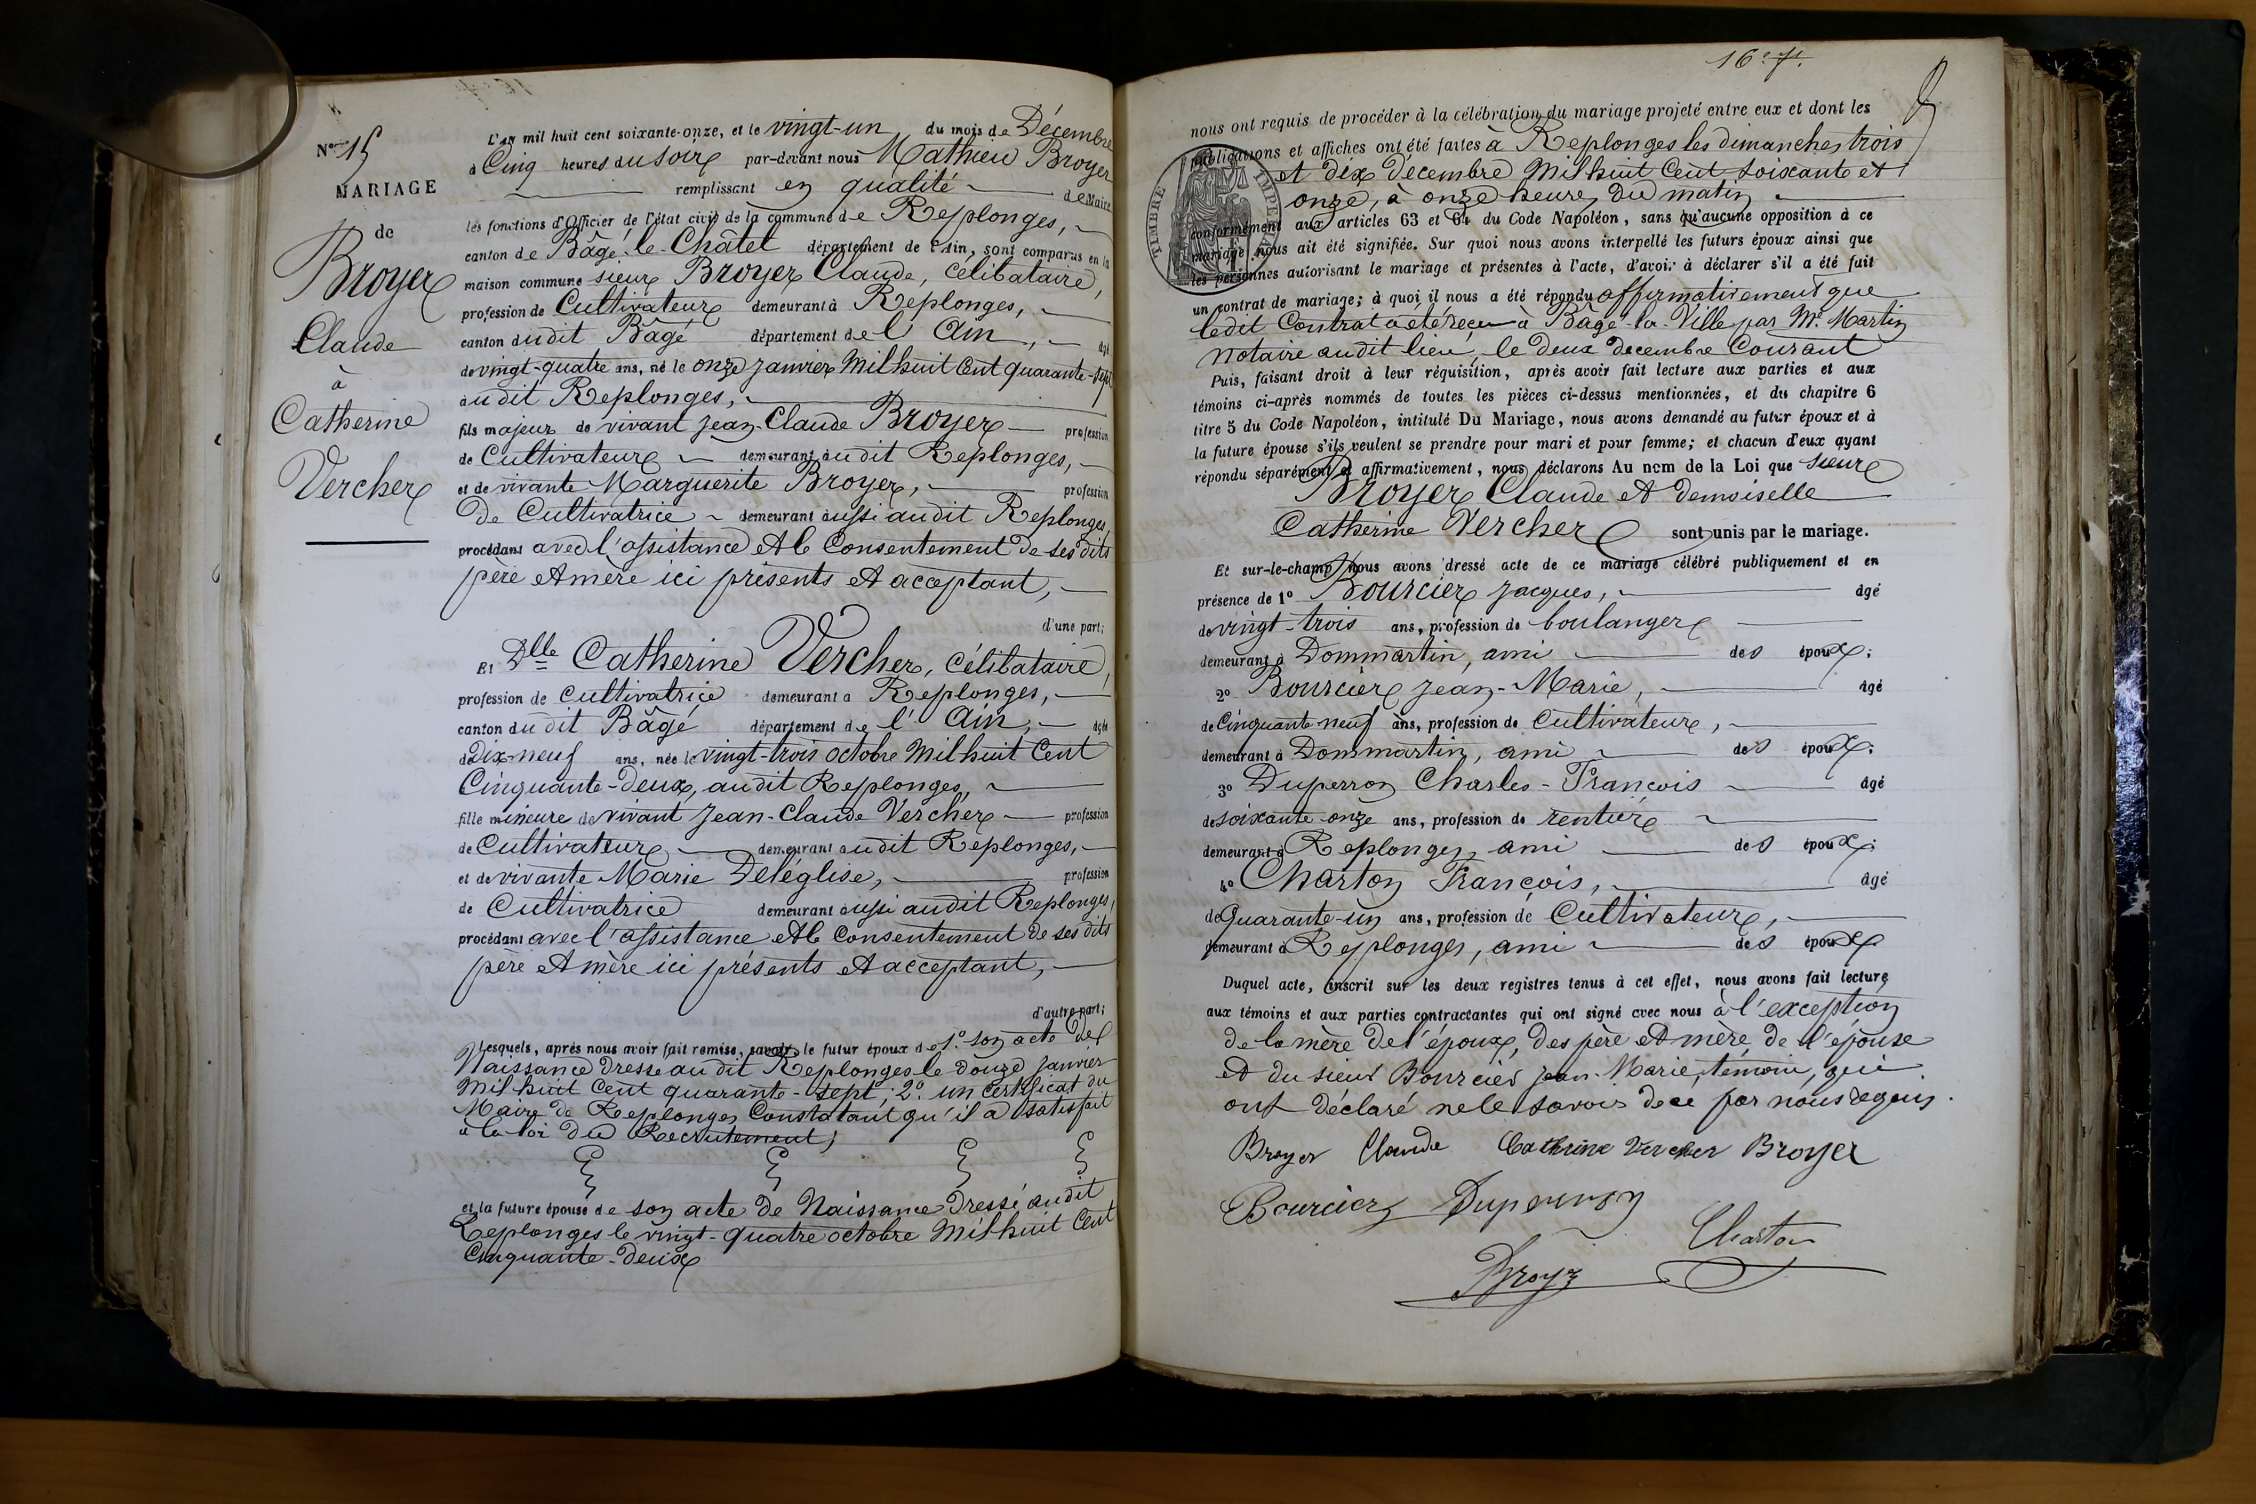 N° 15
MARIAGE
de
Broyer
Claude
à
Catherine
Vercher
L'an mil huit cent soixante-onze, et le vingt-un du mois de Décembre
à Cinq heures du soir par-devant nous Mathieu Broyer
remplissant en qualité de Maire
les fonctions d'Officier de l'état civil de la commune de Replonges,
canton de Bâgé-le-Châtel département de l'Ain, sont comparus en la
maison commune sieur Broyer Claude, célibataire,
profession de Cultivateur demeurant à Replonges,
canton dudit Bâgé département de l'Ain, âgé
de vingt-quatre ans, né le onze janvier Mil huit Cent quarante-sept
audit Replonges,
fils majeur de vivant Jean-Claude Broyer profession
de Cultivateur demeurant audit Replonges,
et de vivante Marguerite Broyer, profession
de Cultivatrice demeurant aussi audit Replonges,
procédant avec l'assistance et le Consentement de ses dits
père et mère ici présents et acceptant,
d'une part;
Et Dlle Catherine Vercher, célibataire,
profession de cultivatrice demeurant à Replonges,
canton du dit Bâgé département de l'Ain, âgée
de Dix-neuf ans, née le vingt-trois octobre Mil huit Cent
Cinquante-Deux, audit Replonges,
fille mineure de vivant Jean-Claude Vercher profession
de Cultivateur demeurant audit Replonges,
et de vivante Marie Deléglise, profession
de Cultivatrice demeurant aussi audit Replonges,
procédant avec l'assistance et le Consentement de ses dits
père et mère ici présents et acceptant,
d'autre part;
Lesquels, après nous avoir fait remise, savoir: le futur époux de 1° son acte de
Naissance dressé audit Replonges le douze Janvier
Mil huit Cent quarante-sept; 2° un Certificat du
Maire de Replonges Constatant qu'il a satisfait
à la loi du Recrutement;
et la future épouse de son acte de Naissance Dressé audit
Replonges le vingt-quatre octobre Mil huit Cent
Cinquante-Deux
16e f.
nous ont requis de procéder à la célébration du mariage projeté entre eux et dont les
publications et affiches ont été faites à Replonges les dimanches trois
et dix Décembre Mil huit Cent soixante et
onze, à onze heures du matin
TIMBRE IMPERIAL
conformément aux articles 63 et 64 du Code Napoléon, sans qu'aucune opposition à ce
mariage nous ait été signifiée. Sur quoi nous avons interpellé les futurs époux ainsi que
les personnes autorisant le mariage et présentes à l'acte, d'avoir à déclarer s'il a été fait
un contrat de mariage; à quoi il nous a été répondu affirmativement que
ledit Contrat a été reçu à Bâgé-la-Ville par Me Martin
Notaire audit lieu, le deux décembre Courant
Puis, faisant droit à leur réquisition, après avoir fait lecture aux parties et aux
témoins ci-après nommés de toutes les pièces ci-dessus mentionnées, et du chapitre 6
titre 5 du Code Napoléon, intitulé Du Mariage, nous avons demandé au futur époux et à
la future épouse s'ils veulent se prendre pour mari et pour femme; et chacun d'eux ayant
répondu séparément et affirmativement, nous déclarons Au nom de la Loi que sieur
Broyer Claude et Demoiselle
Catherine Vercher sont unis par le mariage.
Et sur-le-champ nous avons dressé acte de ce mariage célébré publiquement et en
présence de 1° Bourcier Jacques, âgé
de vingt-trois ans, profession de boulanger
demeurant à Dommartin, ami des époux;
2° Bourcier Jean-Marie, âgé
de Cinquante neuf ans, profession de Cultivateur,
demeurant à Dommartin, ami des époux;
3° Duperron Charles-François âgé
de soixante-onze ans, profession de rentier
demeurant à Replonges, ami des époux;
4° Charton François, âgé
de Quarante-un ans, profession de Cultivateur,
demeurant à Replonges, ami des époux
Duquel acte, inscrit sur les deux registres tenus à cet effet, nous avons fait lecture
aux témoins et aux parties contractantes qui ont signé avec nous à l'exception
de la mère de l'époux, des père et mère de l'épouse
et du sieur Bourcier Jean-Marie, témoin, qui
ont déclaré ne le savoir de ce par nous requis.
Broyer Claude Cathrine Vercher Broyer
Bourcier Duperron
Charton
Broyer